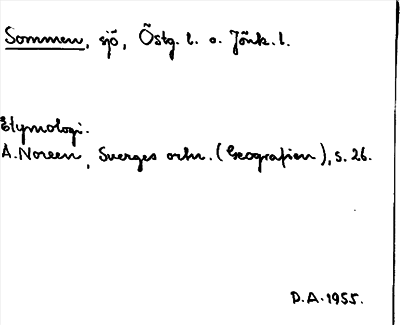 Sommen, sjö, Östg. l. o. Jönk. l.
Etymologi.
A. Noreen, Sverges ortn. (Geografien), s. 26.
D.A. 1955.